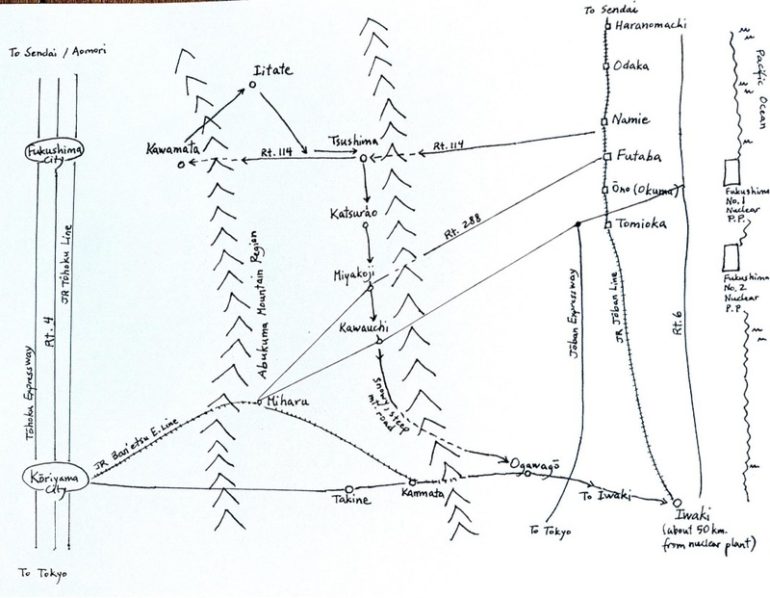 To Sendai
Haranomachi
To Sendai / Aomori
Iitate
Odaka
Pacific Ocean
Namie
Fukushima
City
Kawamata
Rt. 114
Tsushima
Rt. 114
Futaba
Ōno (Okuma)
Fukushima
No. 1
Nuclear
P.P.
Katsurao
Rt. 288
Tomioka
JR Tōhoku Line
Abukuma Mountain Region
Miyakoji
Fukushima
No. 2
Nuclear
P.P
Rt. 4
Kawauchi
Jōban Expressway
JR Jōban Line
Rt. 6
Tōhoku Expressway
Miharu
snowy, steep
mt. road
JR Ban'etsu E. Line
Ogawagō
Kōriyama
City
Takine
Kanmata
To Iwaki
Iwaki
(about 50 km.
from nuclear plant)
To Tokyo
To Tokyo